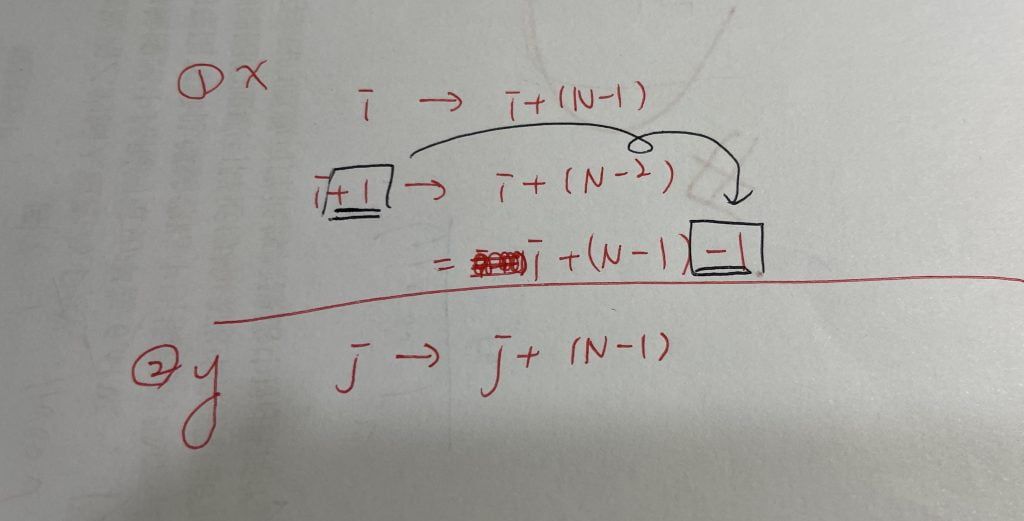 ① x
i → i + (N-1)
i+1 → i + (N-2)
= i + (N-1) -1
② y j → j + (N-1)